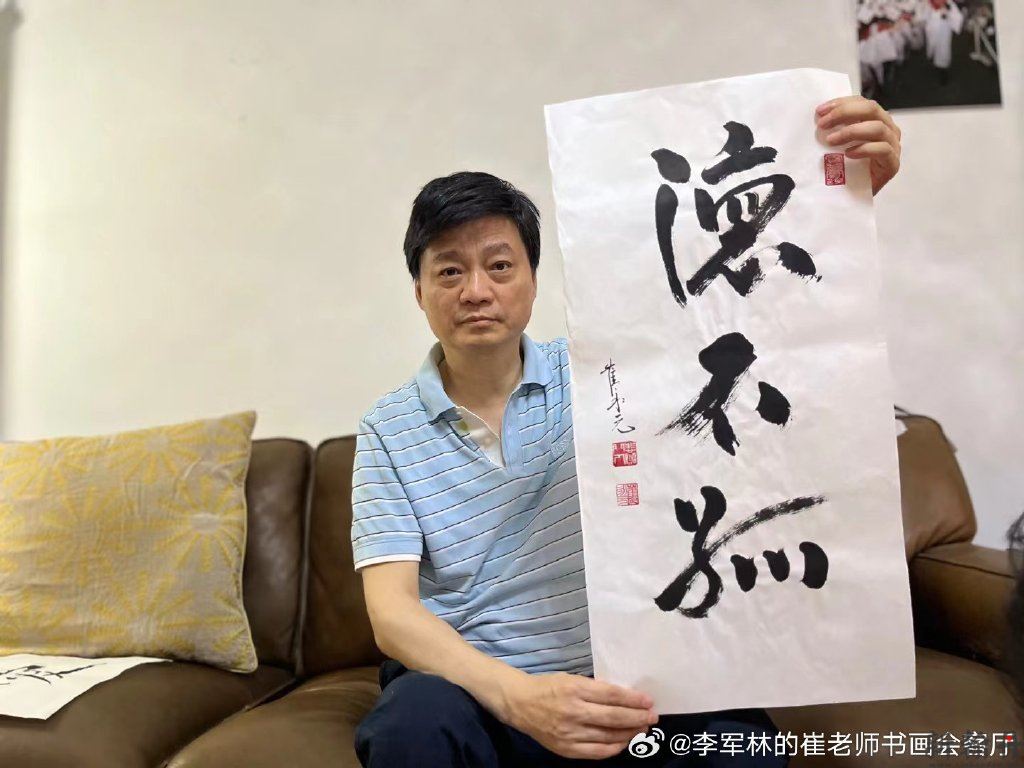 德不孤
崔永元
@李军林的崔老师书画会客厅